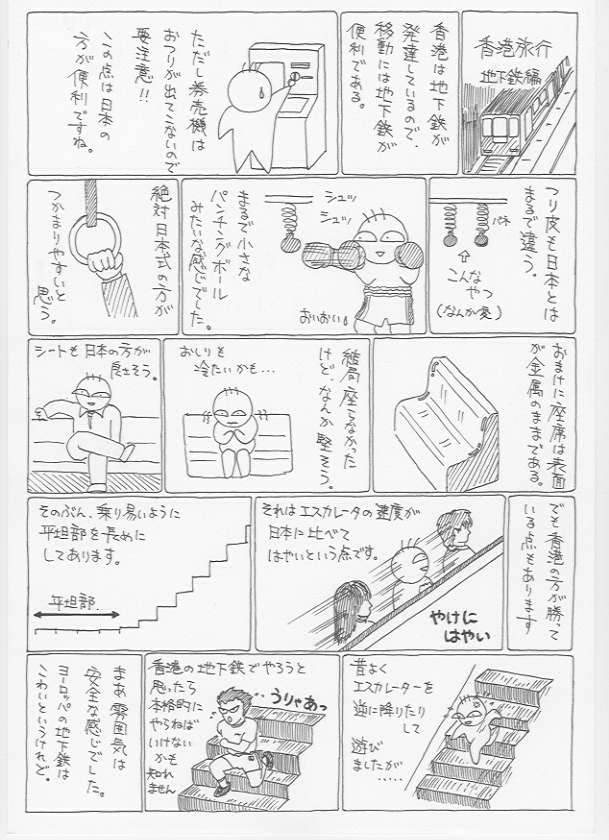 香港旅行
地下鉄編
香港は地下鉄が
発達しているので、
移動には地下鉄が
便利である。
ただし券売機は
おつりが出てこないので
要注意!!
この点は日本の
方が便利ですね。
つり皮も日本とは
まるで違う。
バネ
こんな
やつ
(なんか変)
シュッ
シュッ
まるで小さな
パンチングボール
みたいな感じでした。
おいおい。
絶対日本式の方が
つかまりやすいと
思う。
おまけに座席は表面
が金属のままである。
結局座らなかった
けど、なんか堅そう。
おしりも
冷たいかも…
シートも日本の方が
良さそう。
でも香港の方が勝って
いる点もあります
それはエスカレータの速度が
日本に比べて
はやいという点です。
やけに
はやい
そのぶん、乗り易いように
平坦部を長めに
してあります。
平坦部
昔よく
エスカレーターを
逆に降りたりして
遊び
ましたが……
香港の地下鉄でやろうと
思ったら
本格的に
やらねば
いけない
かも
知れ
ません
‥うりゃあっ
まあ雰囲気は
安全な感じでした。
ヨーロッパの地下鉄は
こわいというけれど。